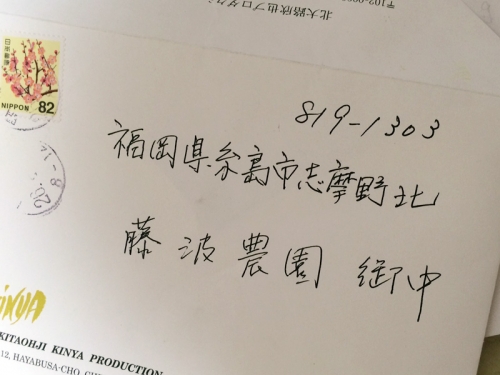 〒102-00
北大路欣也プロダク
日本郵便
NIPPON 82
819-1303
福岡県糸島市志摩野北
藤波農園 御中
KINYA
KITAOHJI KINYA PRODUCTION
12, HAYABUSA-CHO, CH